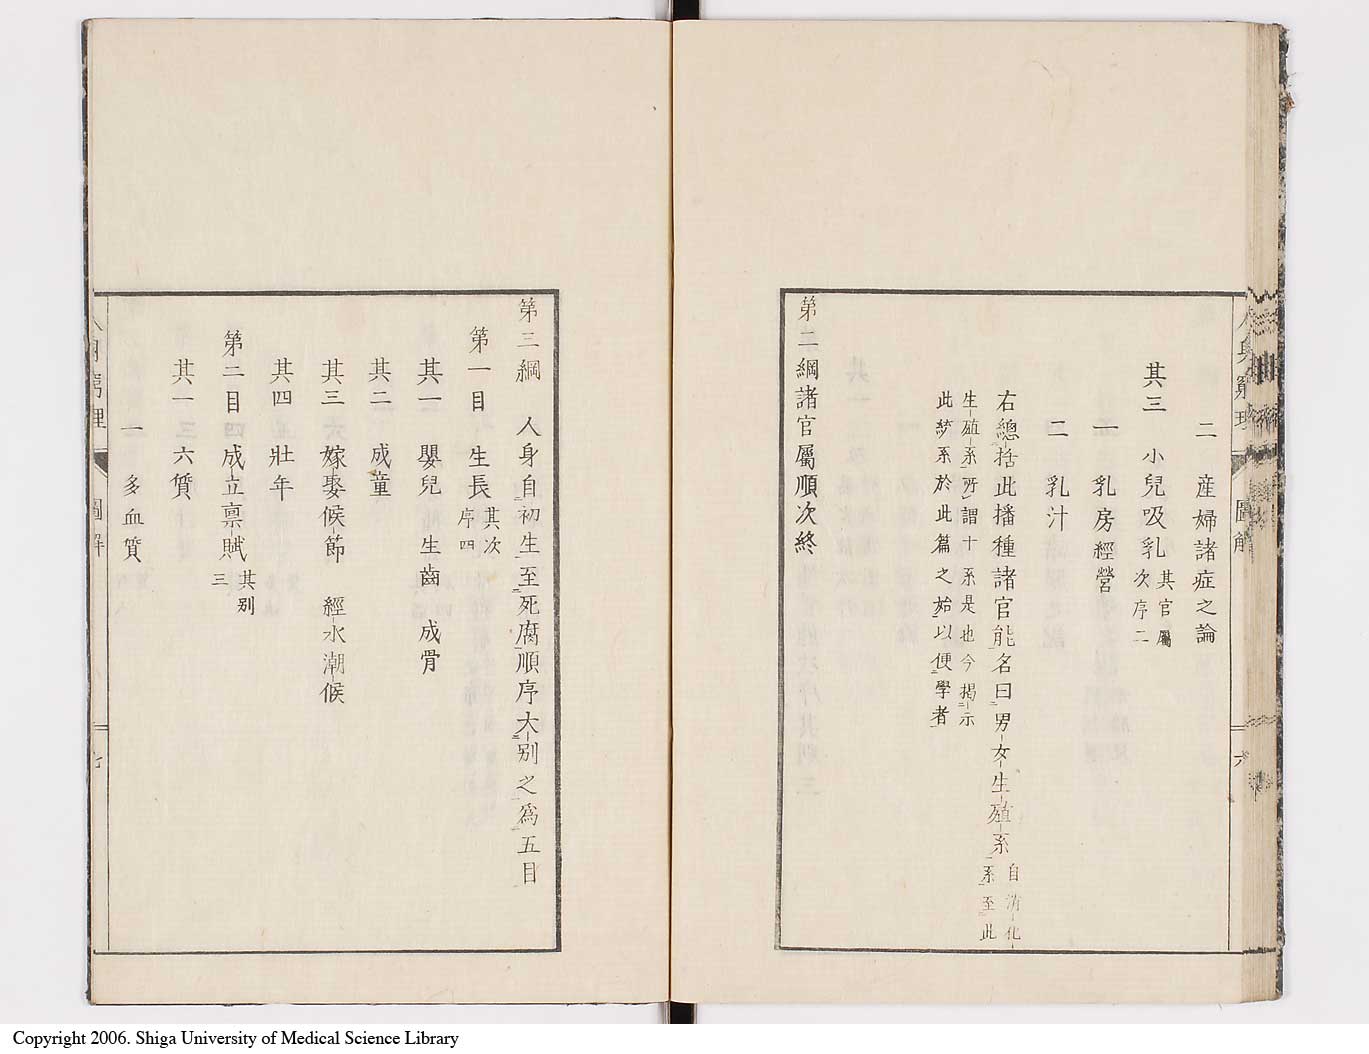 二 産婦諸症之論
其三 小兒吸乳 其官屬
次序二
一 乳房經營
二 乳汁
右總括此播種諸官能名曰男女生殖系 自消化
系至此
生殖系所謂十系是也今揭示
此於此篇之始以便學者
第二綱諸官屬順次終
圖解
六
第三綱 人身自初生至死腐順序大別之爲五目
第一目 生長 其次
序四
其一 嬰兒 生齒 成骨
其二 成童
其三 嫁娶候節 經水潮候
其四 壯年
第二目 成立禀賦 其別
三
其一 六質
一 多血質
Copyright 2006. Shiga University of Medical Science Library